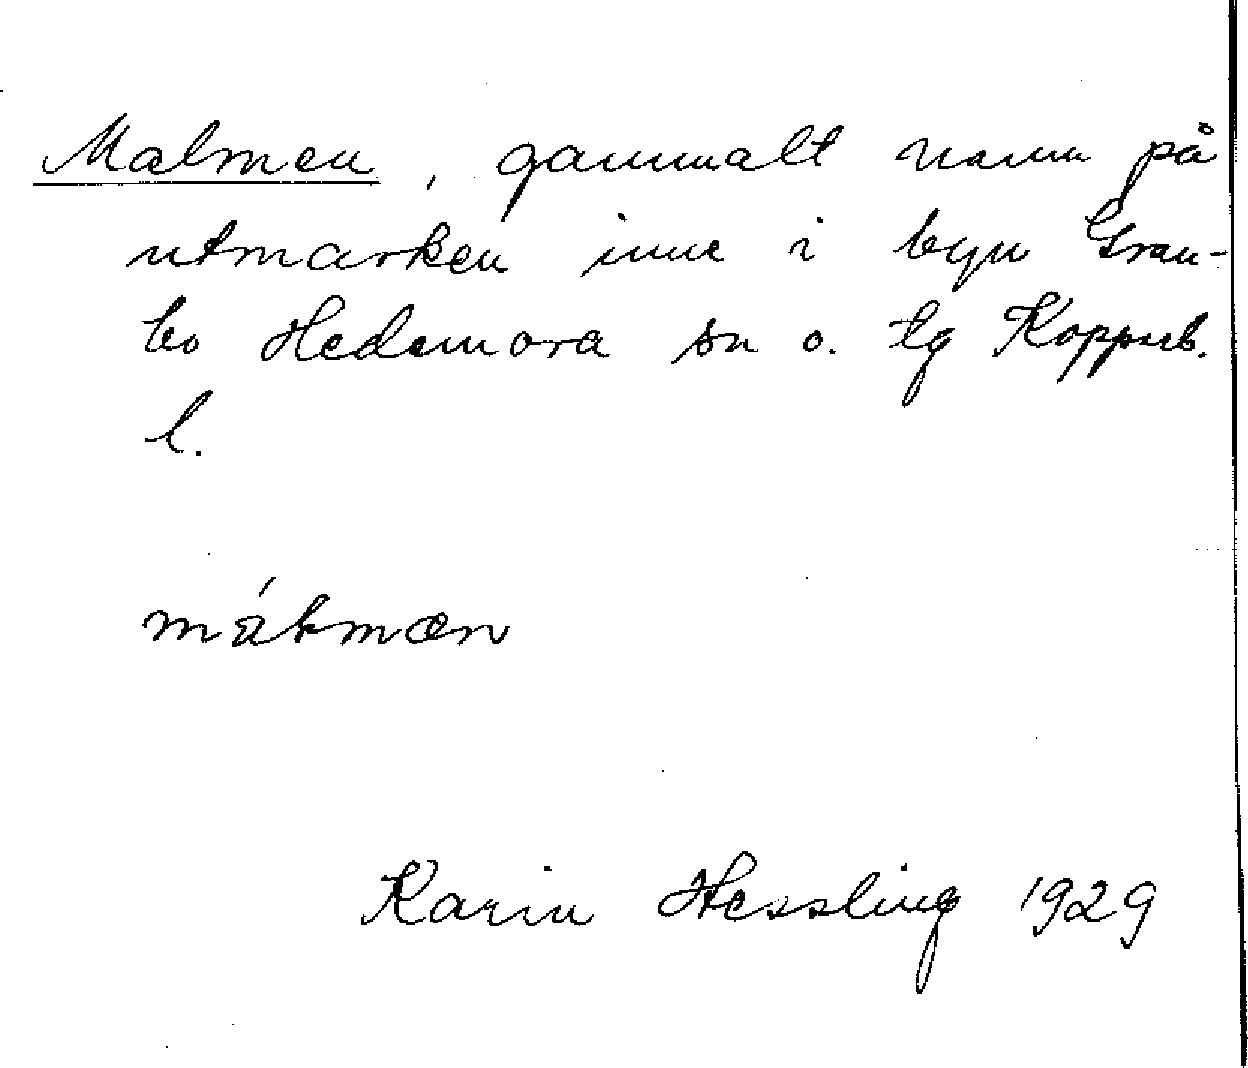 Malmen, gammalt namn på
utmarken inne i byn Gran-
bo Hedemora sn o. tg Kopparb.
l.
Karin Hessling 1929